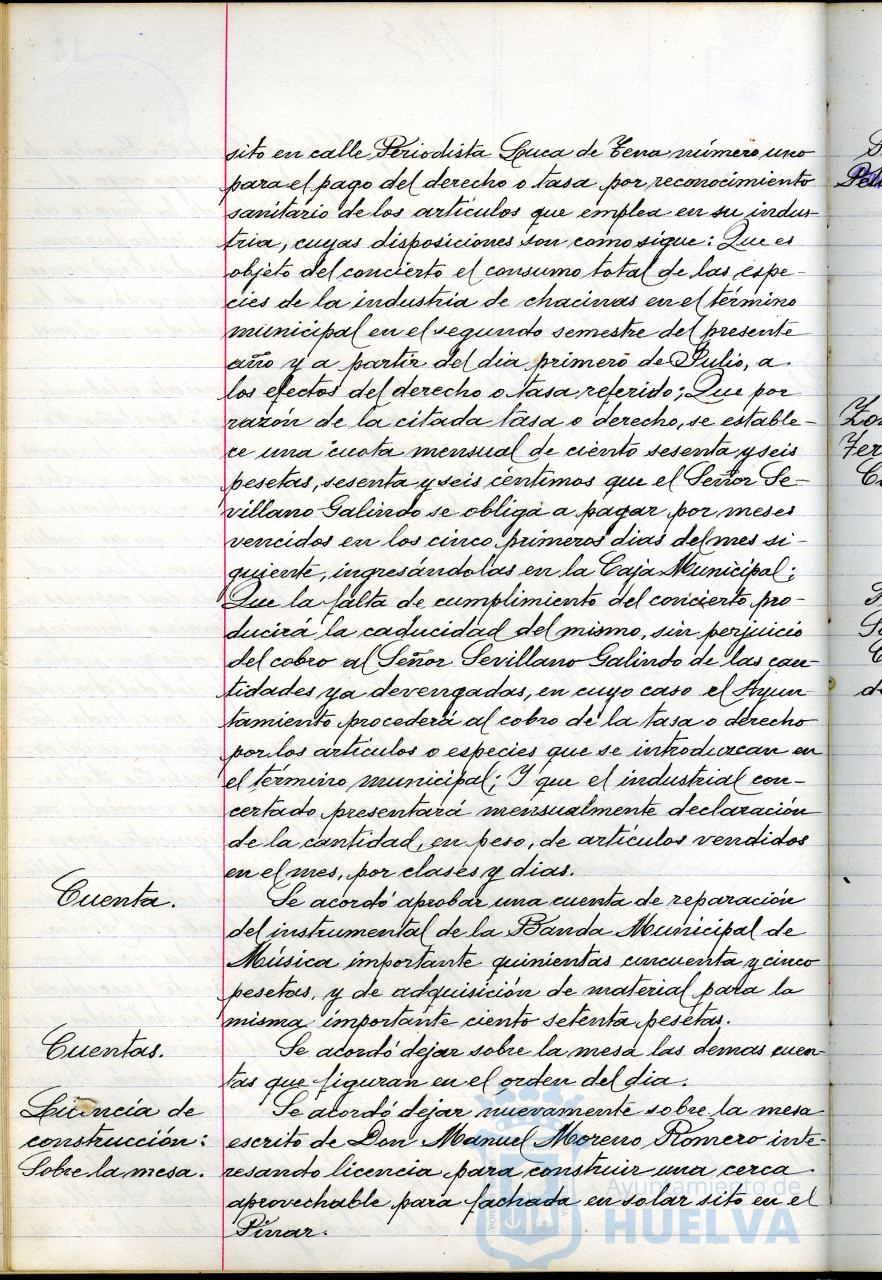 sito en calle Periodista Luca de Tena número uno
para el pago del derecho o tasa por reconocimiento
sanitario de los artículos que emplea en su indus-
tria, cuyas disposiciones son como sigue: Que es
objeto del concierto el consumo total de las espe-
cies de la industria de chacinas en el término
municipal en el segundo semestre del presente
año y a partir del dia primero de Julio, a
los efectos del derecho o tasa referido; Que por
razón de la citada tasa o derecho, se estable-
ce una cuota mensual de ciento sesenta y seis
pesetas, sesenta y seis céntimos que el Señor Se-
villano Galindo se obliga a pagar por meses
vencidos en los cinco primeros dias del mes si-
guiente, ingresándolas en la Caja Municipal;
Que la falta de cumplimiento del concierto pro-
ducirá la caducidad del mismo, sin perjuicio
del cobro al Señor Sevillano Galindo de las can-
tidades ya devengadas, en cuyo caso el Ayun-
tamiento procederá al cobro de la tasa o derecho
por los artículos o especies que se introduzcan en
el término municipal; Y que el industrial con-
certado presentará mensualmente declaración
de la cantidad, en peso, de artículos vendidos
en el mes, por clases y dias.
Cuenta. Se acordó aprobar una cuenta de reparación
del instrumental de la Banda Municipal de
Música importante quinientas cincuenta y cinco
pesetas, y de adquisición de material para la
misma importante ciento setenta pesetas.
Cuentas. Se acordó dejar sobre la mesa las demas cuen-
tas que figuran en el orden del dia.
Licencia de Se acordó dejar nuevamente sobre la mesa
construcción: escrito de Don Manuel Moreno Romero inte-
Sobre la mesa. resando licencia para construir una cerca
aprovechable para fachada en solar sito en el
Pinar.
Ayuntamiento de
HUELVA